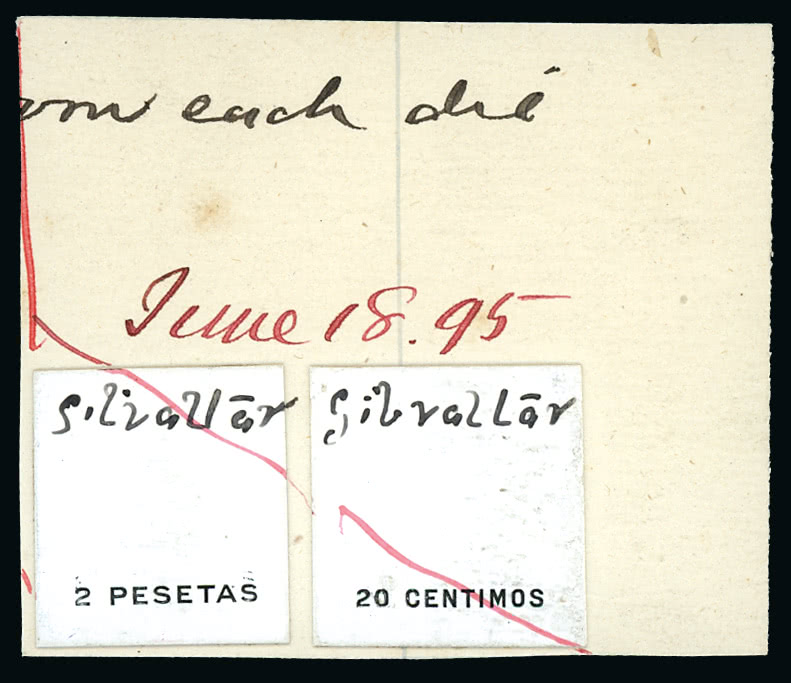 each die
June 18. 95
Gibraltar
Gibraltar
2 PESETAS
20 CENTIMOS